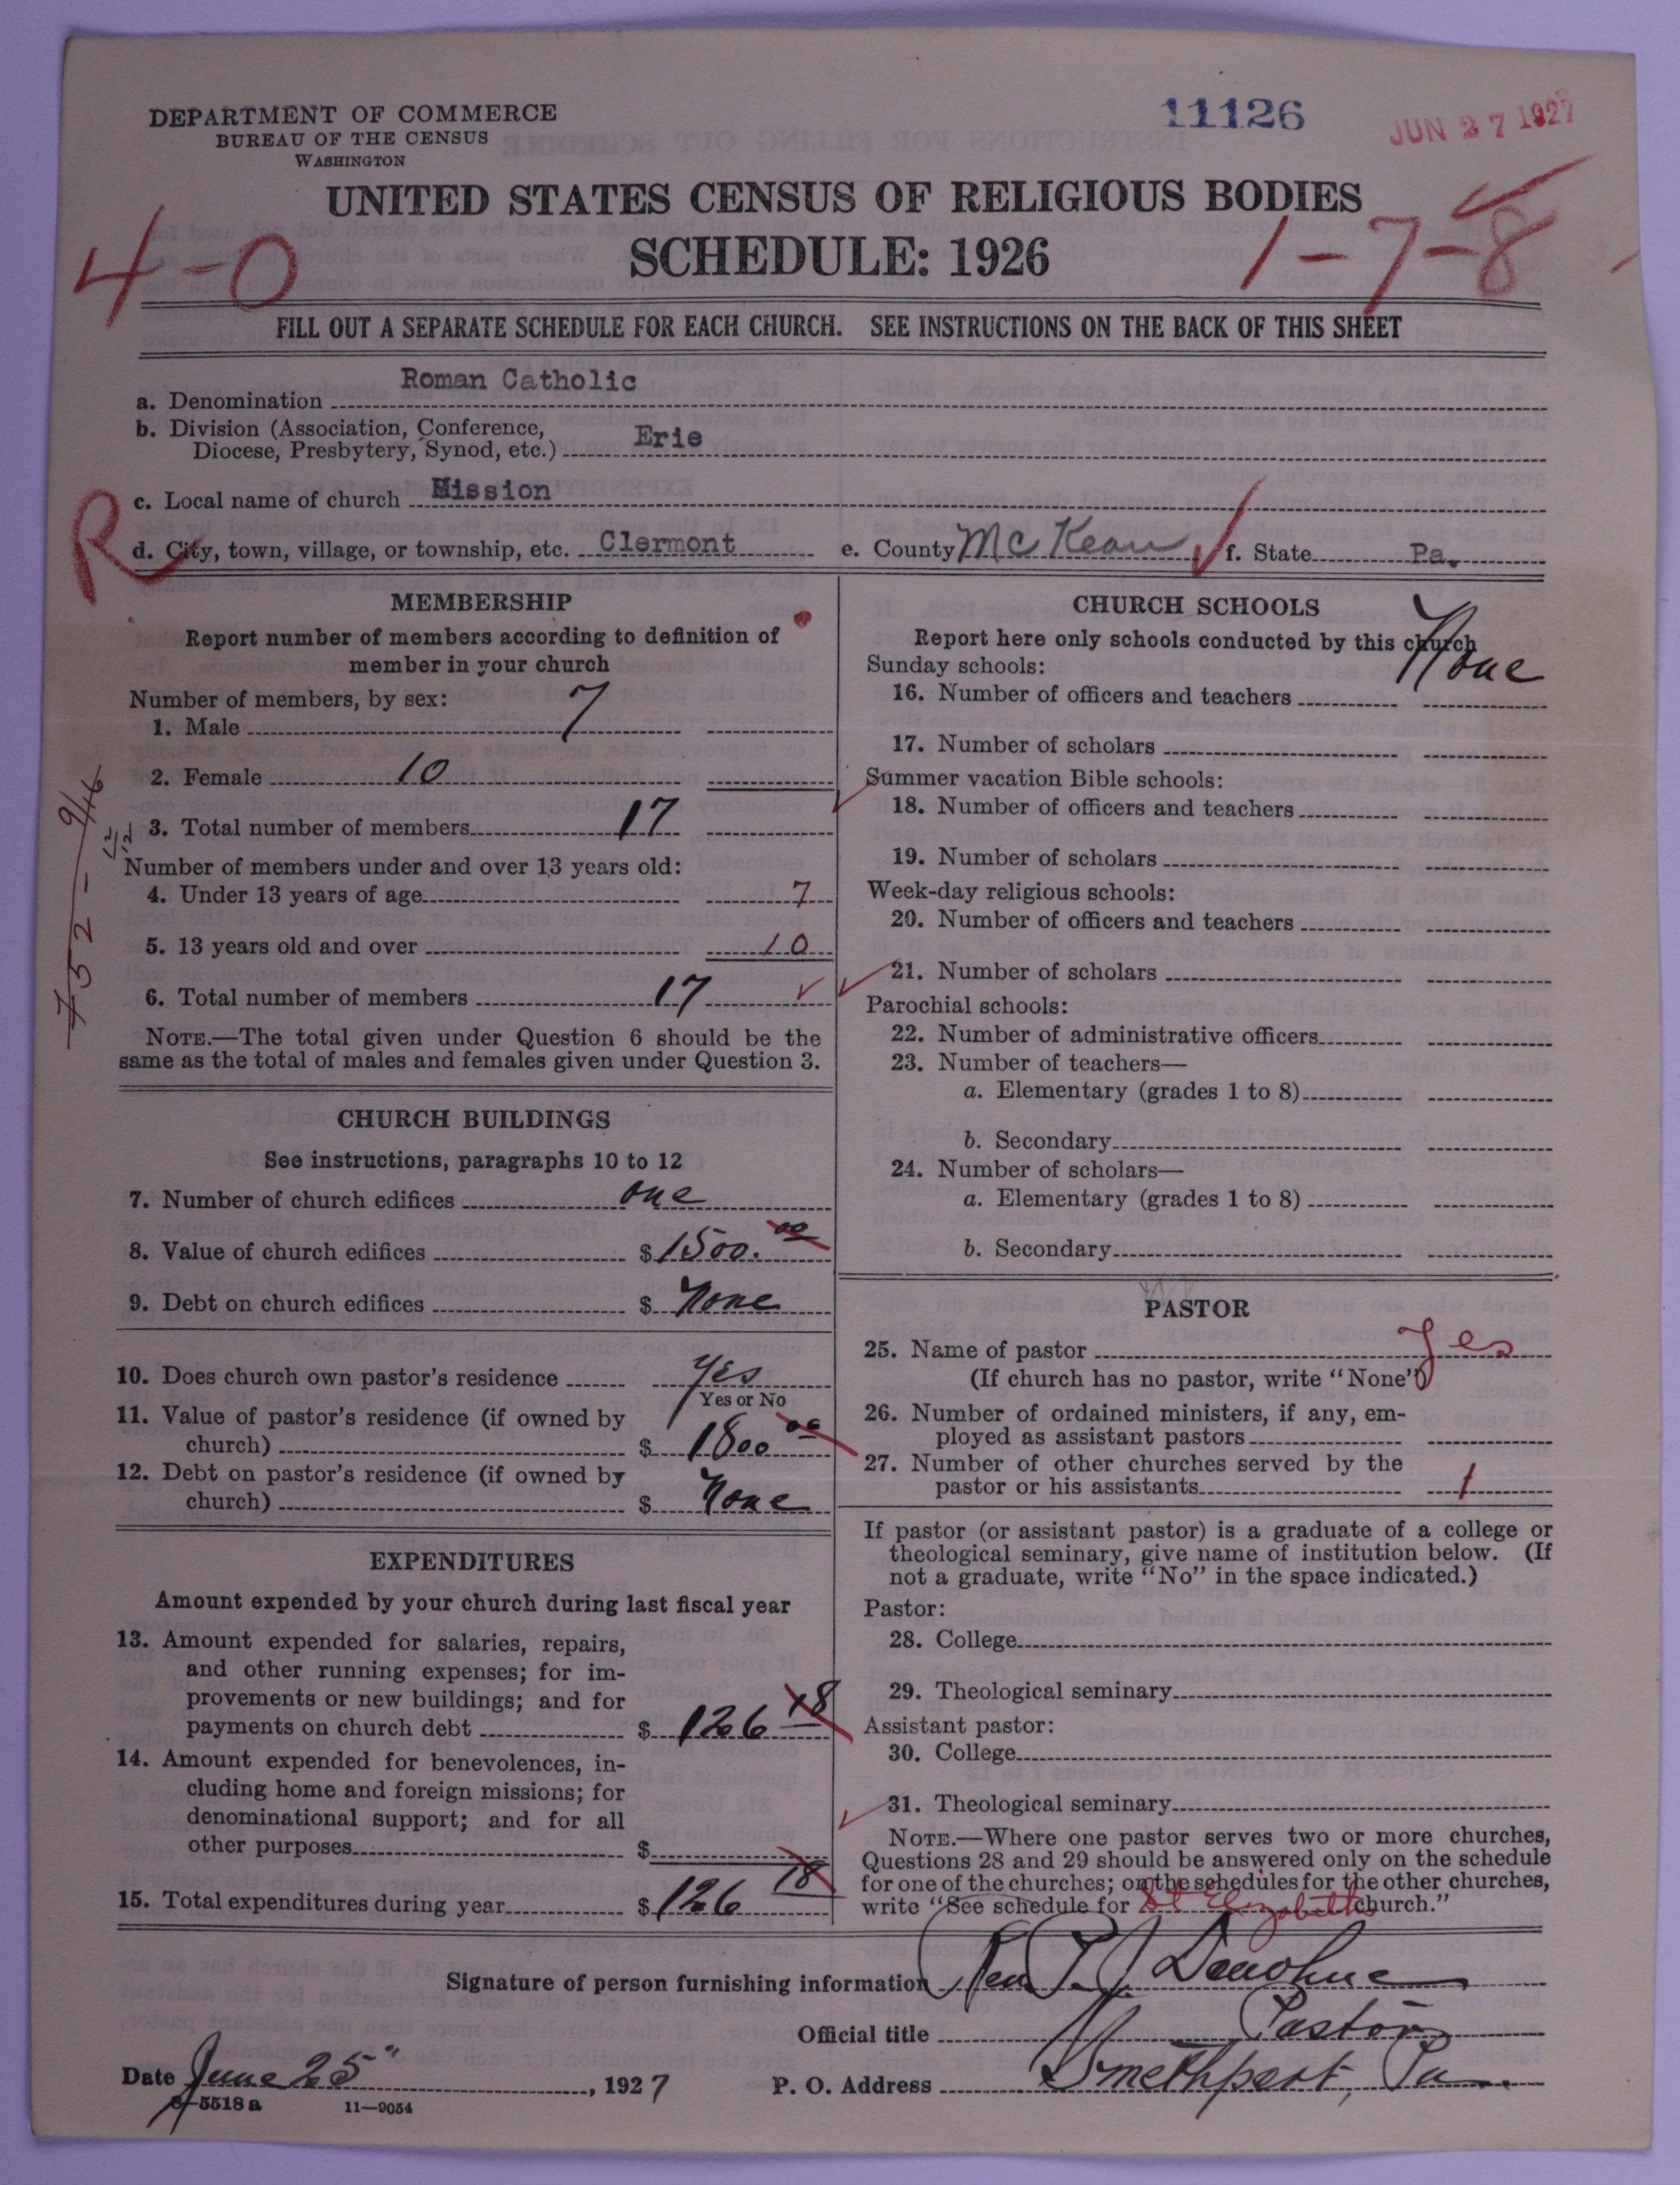 DEPARTMENT OF COMMERCE
BUREAU OF THE CENSUS
WASHINGTON
11126
JUN 27 1927
UNITED STATES CENSUS OF RELIGIOUS BODIES
SCHEDULE: 1926
4-0
1-7-8
FILL OUT A SEPARATE SCHEDULE FOR EACH CHURCH. SEE INSTRUCTIONS ON THE BACK OF THIS SHEET
a. Denomination Roman Catholic
b. Division (Association, Conference,
Diocese, Presbytery, Synod, etc.) Erie
c. Local name of church Mission
R
d. City, town, village, or township, etc. Clermont e. County McKean f. State Pa.
MEMBERSHIP
Report number of members according to definition of
member in your church
Number of members, by sex:
1. Male 7
2. Female 10
3. Total number of members 17
Number of members under and over 13 years old:
4. Under 13 years of age 7
5. 13 years old and over 10
6. Total number of members 17
NOTE.—The total given under Question 6 should be the
same as the total of males and females given under Question 3.
CHURCH BUILDINGS
See instructions, paragraphs 10 to 12
7. Number of church edifices one
8. Value of church edifices $1500.00
9. Debt on church edifices $ None
10. Does church own pastor's residence Yes
Yes or No
11. Value of pastor's residence (if owned by
church) $ 1800 00
12. Debt on pastor's residence (if owned by
church) $ None
EXPENDITURES
Amount expended by your church during last fiscal year
13. Amount expended for salaries, repairs,
and other running expenses; for im-
provements or new buildings; and for
payments on church debt $ 126 18
14. Amount expended for benevolences, in-
cluding home and foreign missions; for
denominational support; and for all
other purposes $
15. Total expenditures during year $ 126 18
CHURCH SCHOOLS
Report here only schools conducted by this church
None
Sunday schools:
16. Number of officers and teachers
17. Number of scholars
Summer vacation Bible schools:
18. Number of officers and teachers
19. Number of scholars
Week-day religious schools:
20. Number of officers and teachers
21. Number of scholars
Parochial schools:
22. Number of administrative officers
23. Number of teachers—
a. Elementary (grades 1 to 8)
b. Secondary
24. Number of scholars—
a. Elementary (grades 1 to 8)
b. Secondary
PASTOR
25. Name of pastor Yes
(If church has no pastor, write "None")
26. Number of ordained ministers, if any, em-
ployed as assistant pastors
27. Number of other churches served by the
pastor or his assistants 1
If pastor (or assistant pastor) is a graduate of a college or
theological seminary, give name of institution below. (If
not a graduate, write "No" in the space indicated.)
Pastor:
28. College
29. Theological seminary
Assistant pastor:
30. College
31. Theological seminary
NOTE.—Where one pastor serves two or more churches,
Questions 28 and 29 should be answered only on the schedule
for one of the churches; on the schedules for the other churches,
write "See schedule for St Elizabeths church."
Signature of person furnishing information Rev. T. J. Donohue
Official title Pastor
Date June 25", 1927 P. O. Address Smethport, Pa.
8-5518 a 11—9054